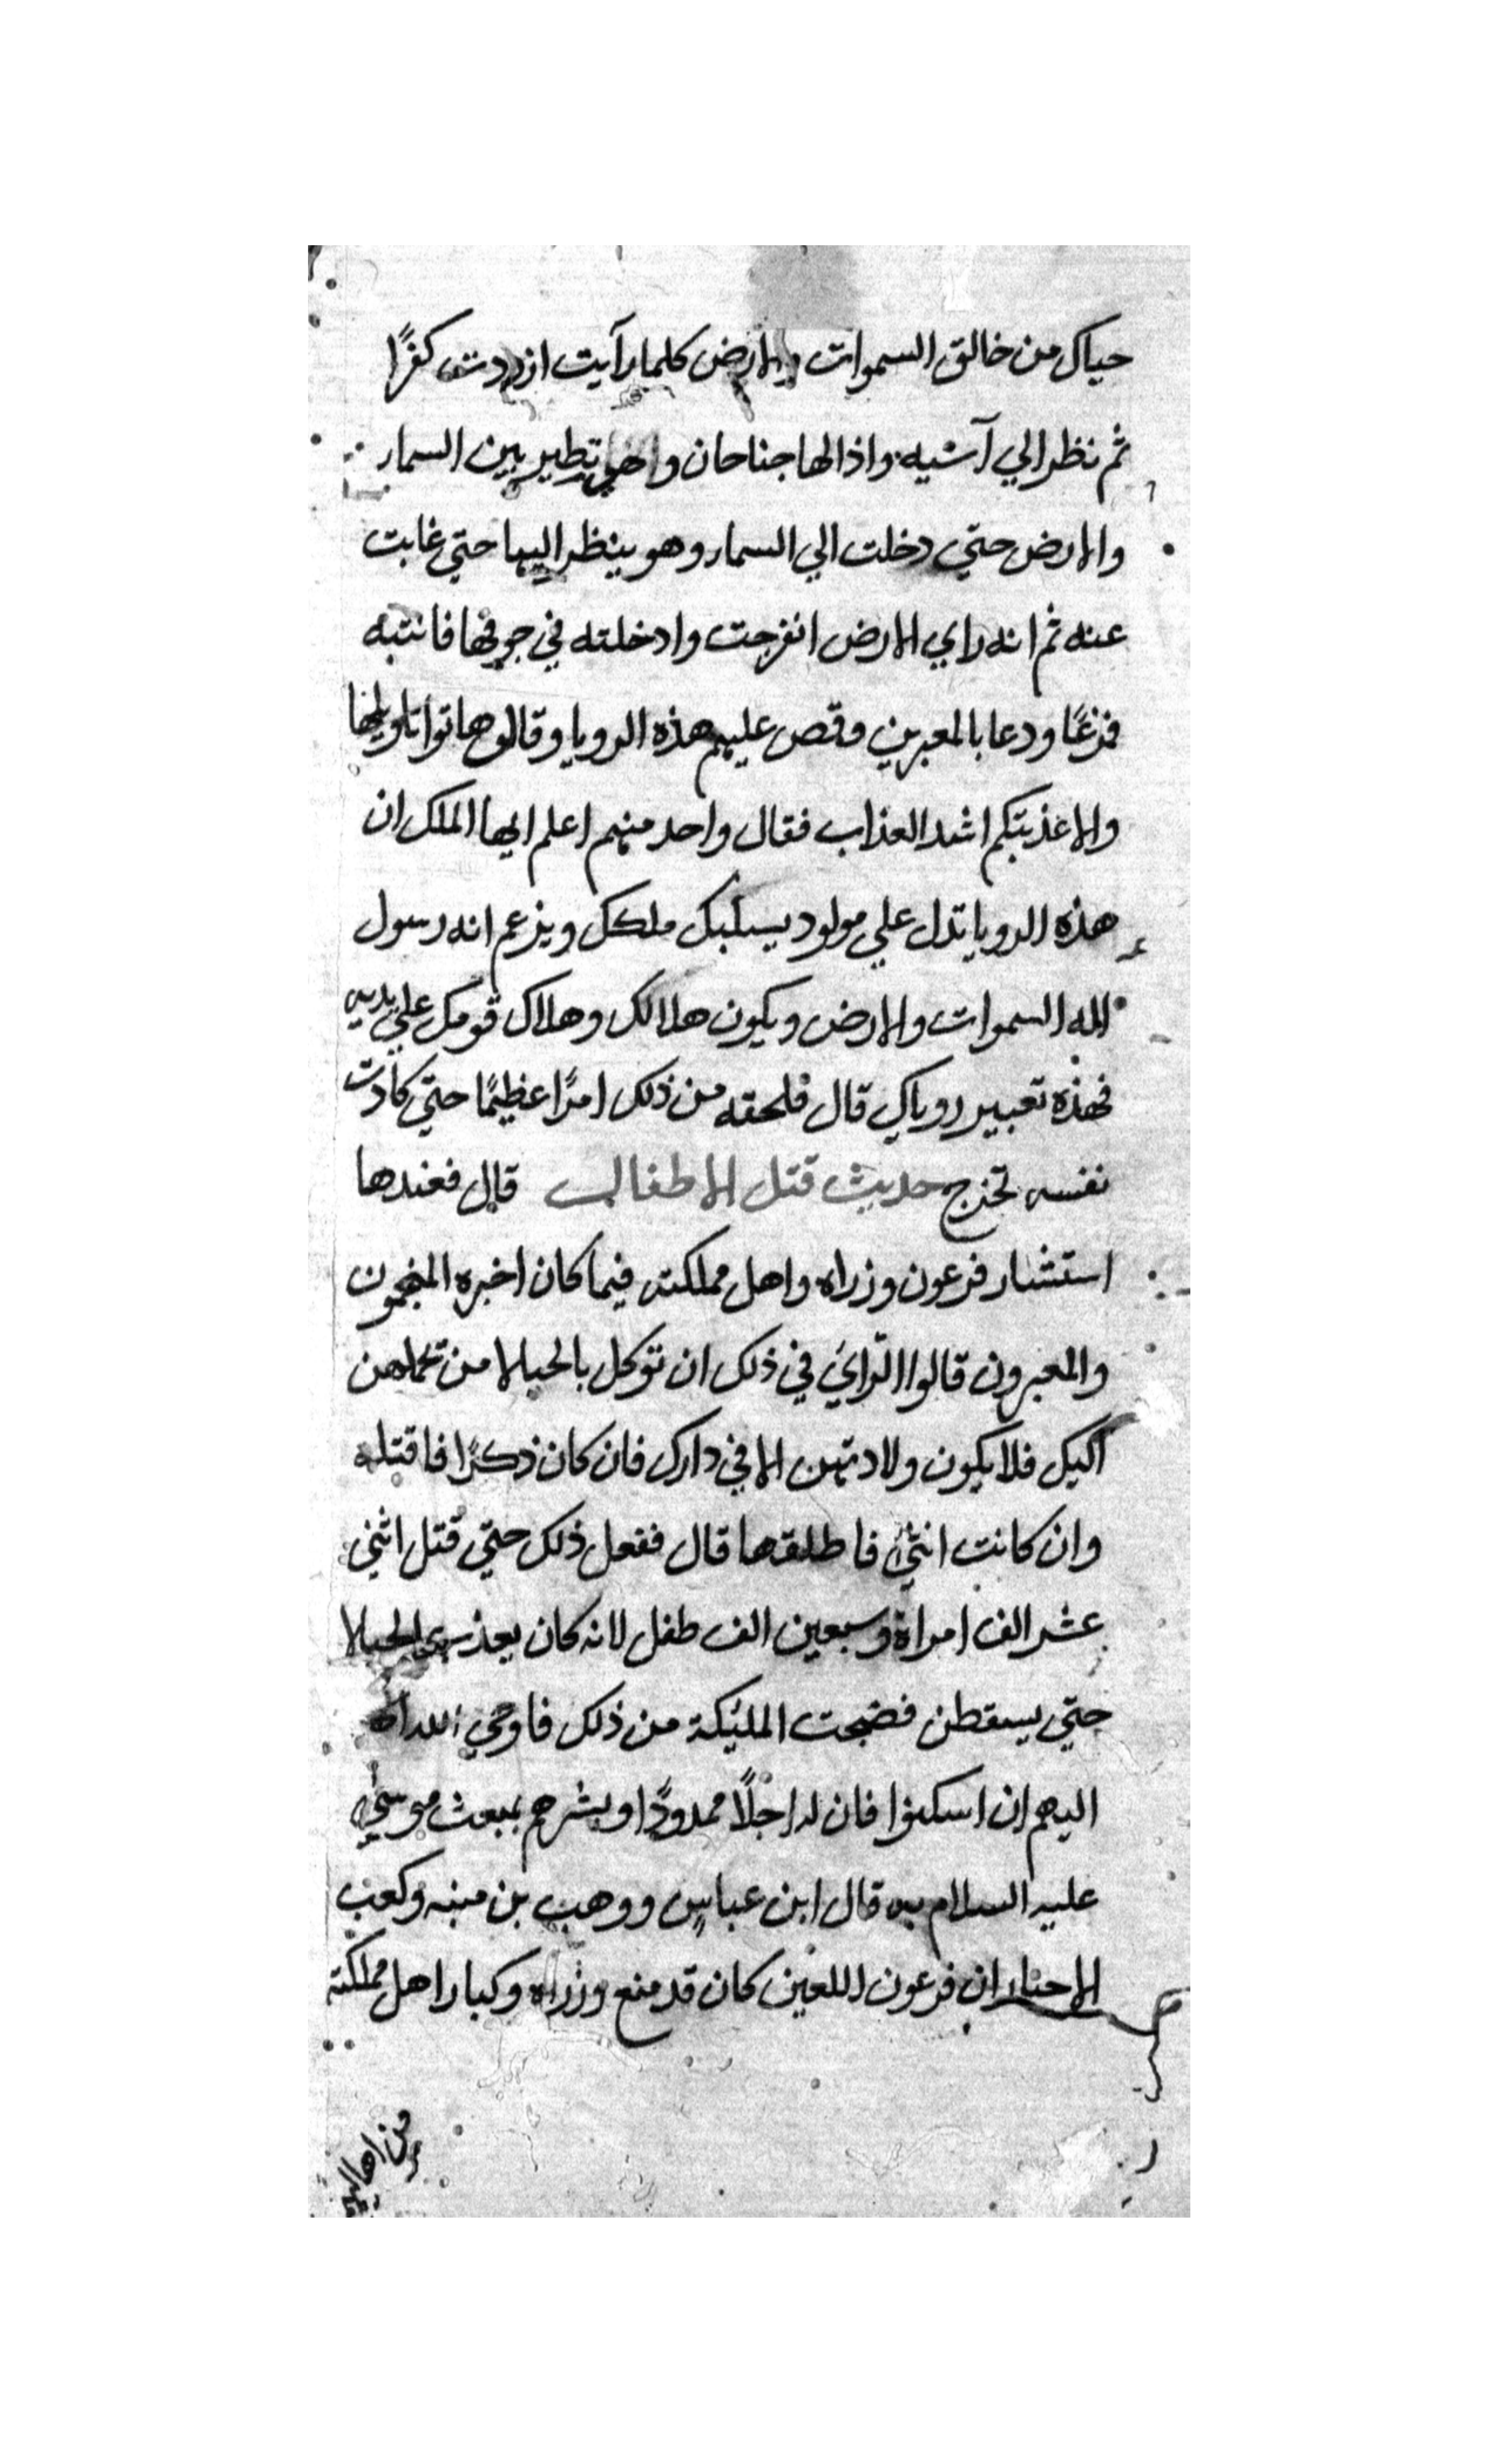 حياك من خالق السموات والارض كلما رآيت ازددت كفرًا
ثم نظر الي آسيه واذا لها جناحان وهي تطير بين السمار
والارض حتي دخلت الي السمار وهو ينظر اليها حتي غابت
عنه ثم انه راي الارض انفرجت وادخلته في جوفها فانتبه
فزعًا ودعا بالمعبرين وقص عليهم هذه الرويا وقال هاتوا تاويلها
والا عذبتكم اشد العذاب فقال واحد منهم اعلم ايها الملك ان
هذه الرويا تدل علي مولود يسلبك ملكك ويزعم انه رسول
اله السموات والارض ويكون هلاكك وهلاك قومك علي يديه
فهذه تعبير روياك قال فلحقه من ذلك امرًا عظيمًا حتي كادت
نفسه تخرج حديث قتل الاطفال قال فعندها
استشار فرعون وزراه واهل مملكته فيما كان اخبره المنجمون
والمعبرون قالوا الرّاي في ذلك ان توكل بالحبلا من تحملهن
اليك فلا يكون ولادتهن الا في دارك فان كان ذكرًا فاقتله
وان كانت انثي فاطلقها قال ففعل ذلك حتي قتل اثني
عشر الف امراة وسبعين الف طفل لانه كان يعذب الحبلا
حتي يسقطن فضجت المليكة من ذلك فاوحي الله
اليهم ان اسكنوا فان له اجلًا ممدودًا وبشرهم بمبعث موسي
عليه السلام به قال ابن عباس ووهب بن منبه وكعب
الاحبار ان فرعون اللعين كان قد منع وزراه وكبار اهل مملكته
من اهاليهم